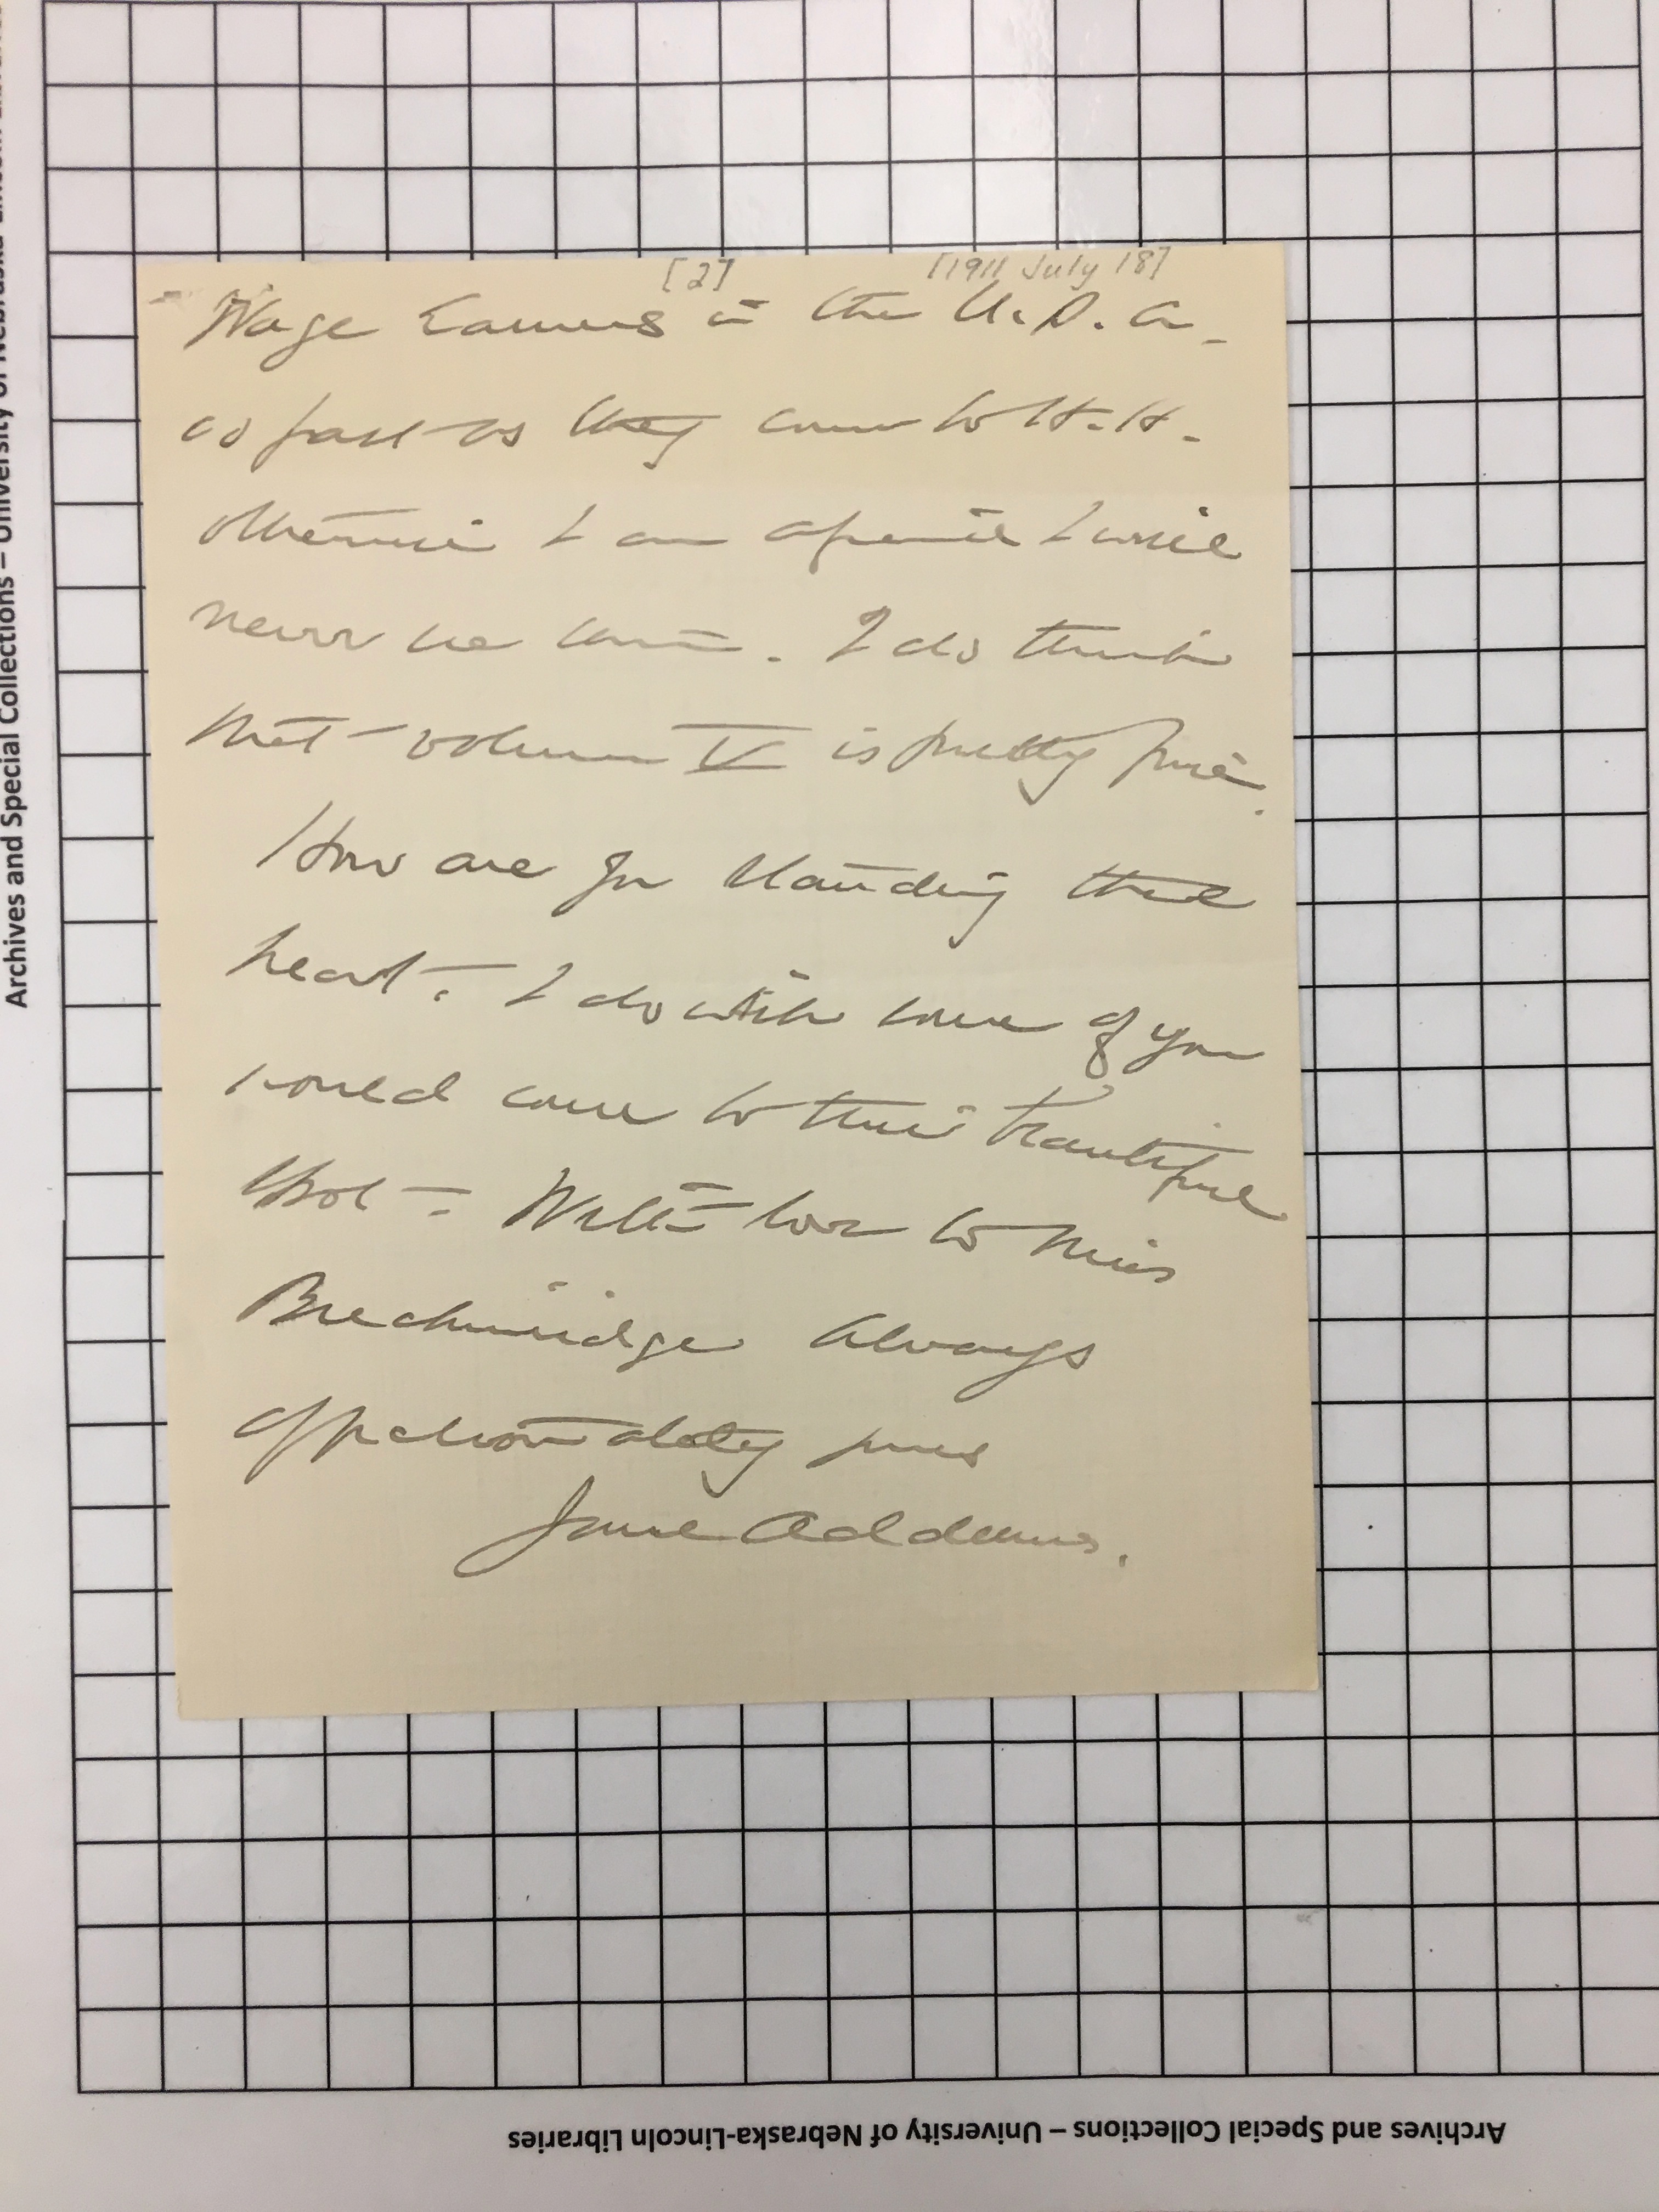 Archives and Special Collections – University of Nebraska-Lincoln Libraries
[2] [1911 July 18]
Wage Earners in the U.S.A.
as fast as they come to H.H.
otherwise I am afraid I will
never be here. I do think
that volume V is pretty fine.
How are you standing the
heat – I do wish some of you
would come to this beautiful
spot – With love to Miss
Breckinridge Always
affectionately yours
Jane Addams.
Archives and Special Collections – University of Nebraska-Lincoln Libraries